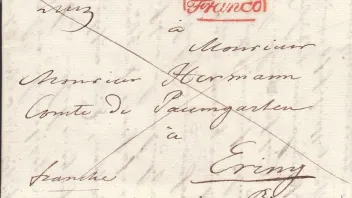 Franco
à
Monsieur
Monsieur Hermann
Comte de Paumgarten
à
Ering
franche